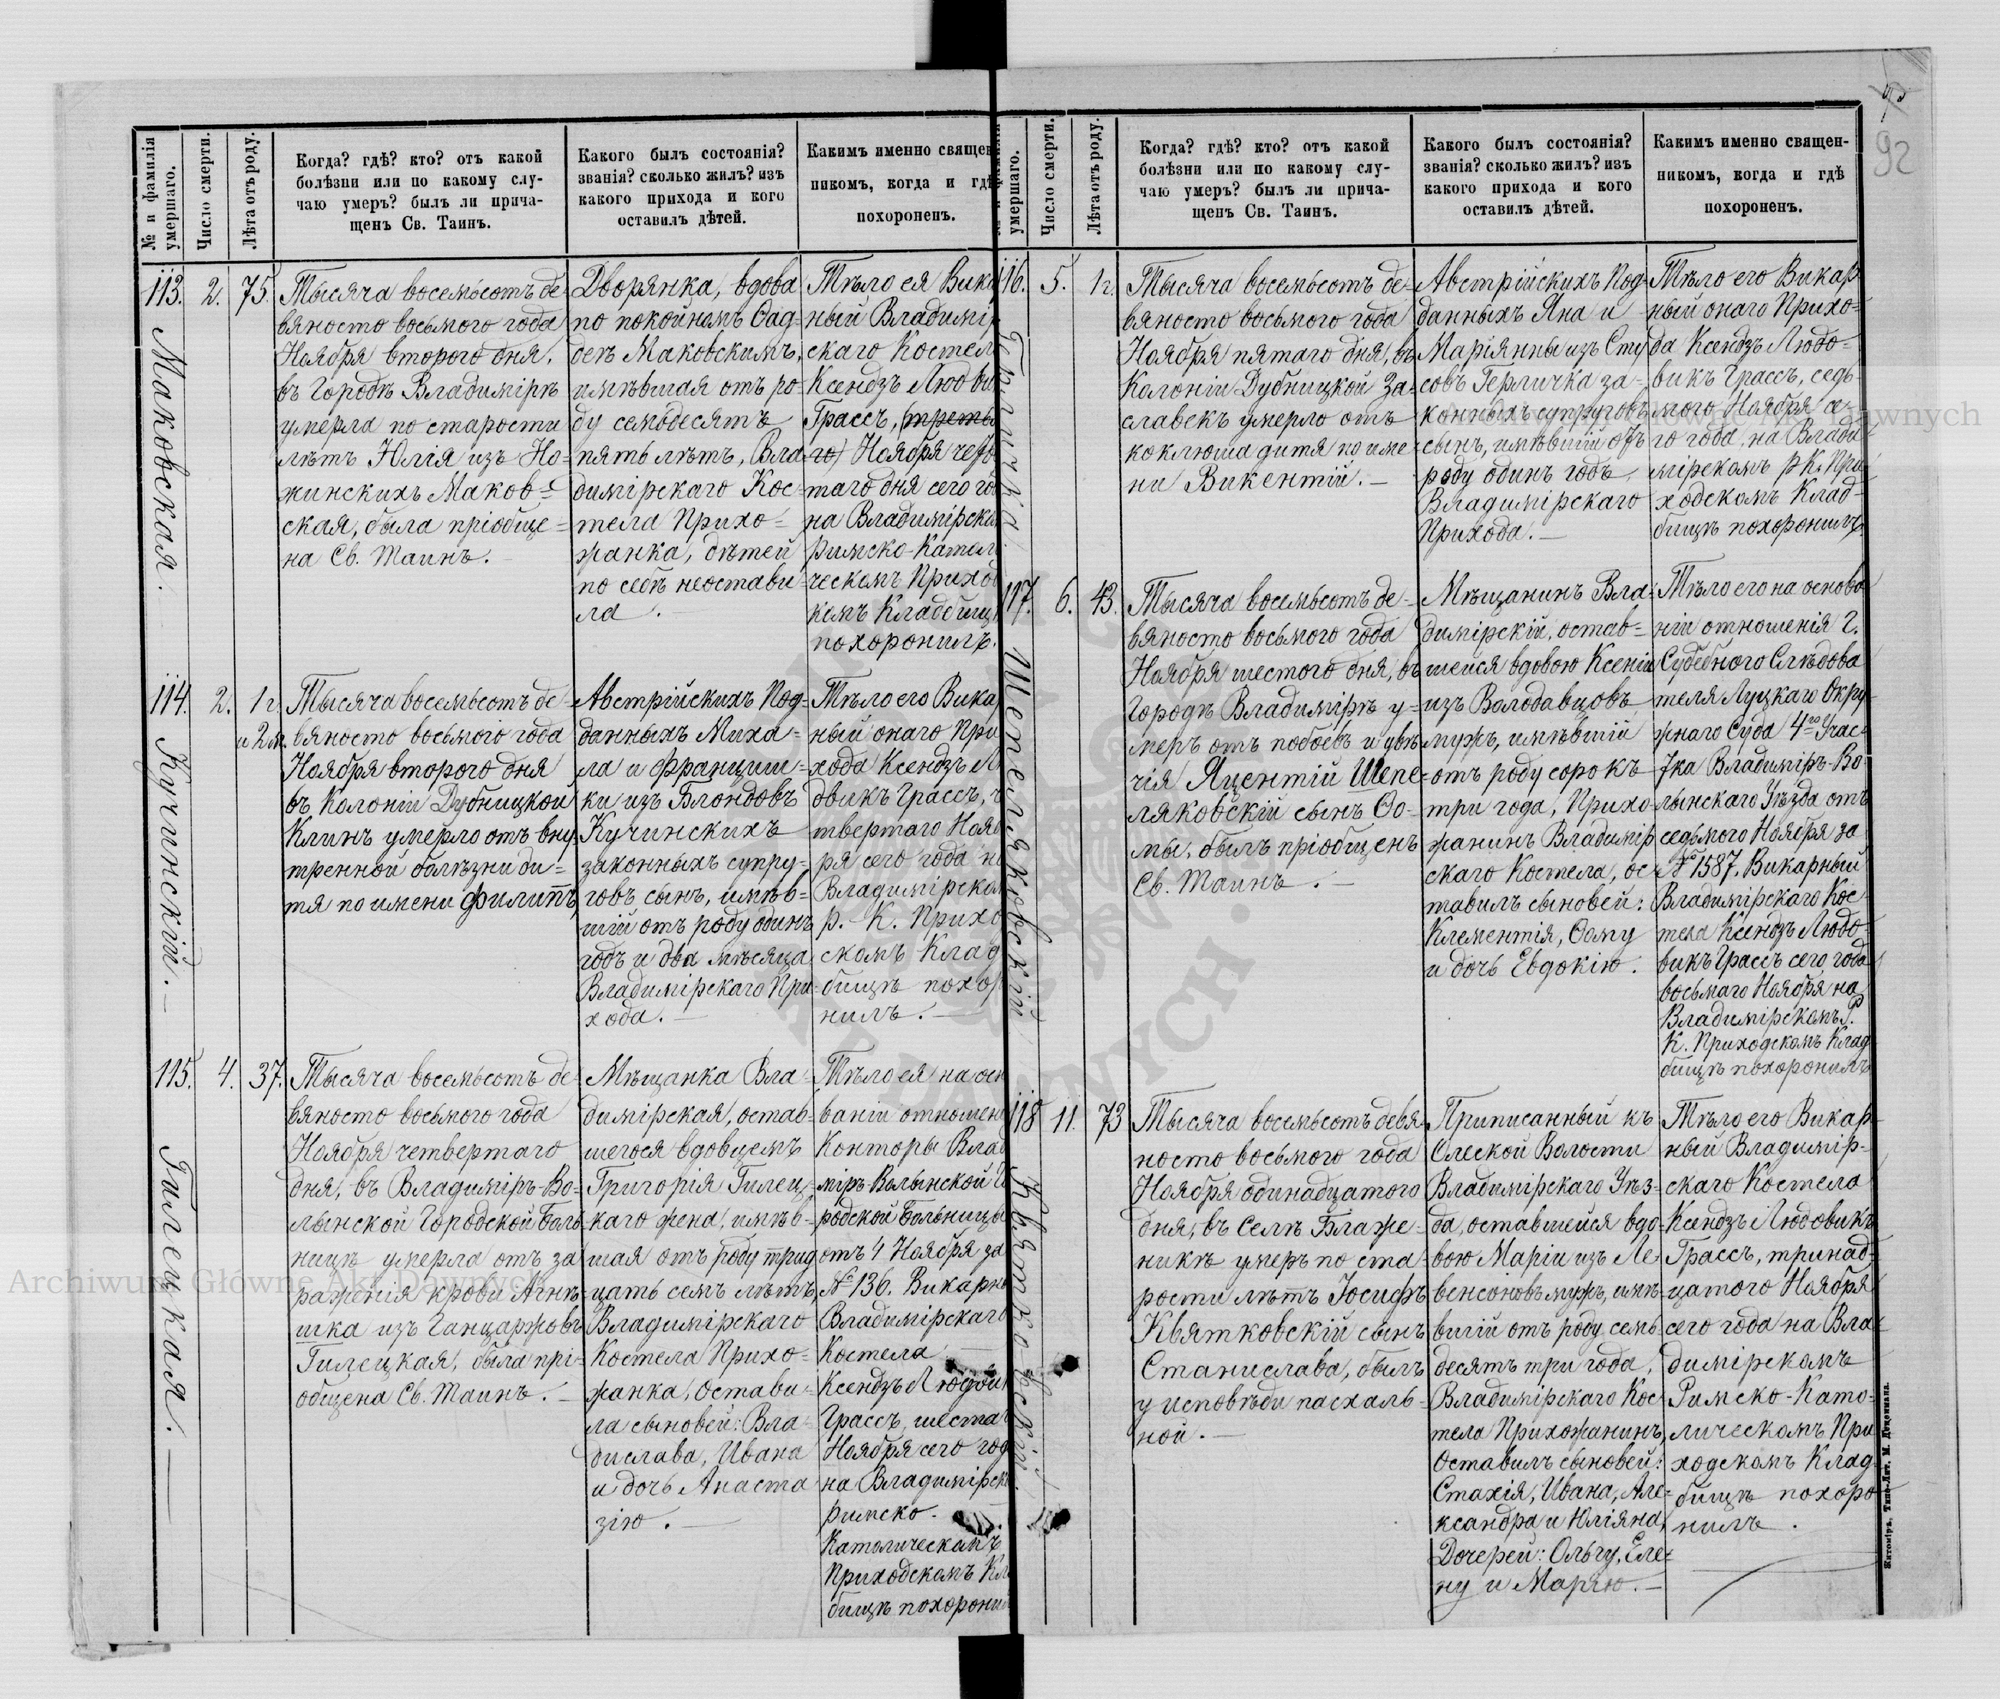 92
№ и фамилія умершаго.
Число смерти.
Лѣта отъ роду.
Когда? гдѣ? кто? отъ какой
болѣзни или по какому слу-
чаю умеръ? былъ ли прича-
щенъ Св. Таинъ.
Какого былъ состоянія?
званія? сколько жилъ? изъ
какого прихода и кого
оставилъ дѣтей.
Какимъ именно священ
никомъ, когда и гдѣ
похороненъ.
113.
Маковская.
2.
75.
Тысяча восемьсотъ де-
вяносто восьмого года
Ноября второго дня,
въ Городѣ Владимірѣ
умерла по старости
лѣтъ Юлія изъ Но-
жинскихъ Маков-
ская, была пріобще-
на Св. Таинъ.
Дворянка, вдова
по покойномъ Фад-
деѣ Маковскимъ,
имѣвшая отъ ро-
ду семьдесятъ
пять лѣтъ, Вла-
димірскаго Кос-
тела Прихо-
жанка, дѣтей
по себѣ неостави-
ла.
Тѣло ея Вика
ный Владимі
скаго Костел
Ксендзъ Людви
Грассъ, (треть
го) Ноября четв
таго дня сего го
на Владимірско
Римско-Катол
ческомъ Приход
комъ Кладбищ
похоронилъ.
114.
Кучинскій.
2.
1 г.
и 2 м.
Тысяча восемьсотъ де-
вяносто восьмого года
Ноября второго дня
въ Колоніи Дубницкой
Клинъ умерло отъ вну
тренной болѣзни ди-
тя по имени Филиппъ,
Австрійскихъ Под-
данныхъ Миха-
ла и Францишки
ки изъ Блондовъ
Кучинскихъ
законныхъ супру-
говъ сынъ, имѣв-
шій отъ роду одинъ
годъ и два мѣсяца
Владимірскаго При-
хода.
Тѣло его Вика
ный онаго При
хода Ксендзъ Л
двикъ Грассъ, ч
твертаго Нояб
ря сего года на
Владимірском
Р.-К. Прихо
скомъ Клад
бищѣ похор
нилъ.
115.
Гилецкая.
4.
37.
Тысяча восемьсотъ де-
вяносто восьмого года
Ноября четвертаго
дня, въ Владиміръ-Во-
лынской Городской Боль
ницѣ умерла отъ за
раженія крови Агнѣ-
шка изъ Ганцаржовъ
Гилецкая, была прі-
общена Св. Таинъ.
Мѣщанка Вла-
димірская, остав-
шегося вдовцемъ
Григорія Гилец-
каго жена, имѣв-
шая отъ роду трид
цать семь лѣтъ,
Владимірскаго
Костела Прихо-
жанка, остави-
ла сыновей: Вла-
дислава, Ивана
и дочь Анаста
зію.
Тѣло ея на осн
ваніи отношен
Конторы Влад
міръ Волынской Го
родской Больницы
отъ 4 Ноября за
№ 136. Викарн
Владимірскаго
Костела
Ксендзъ Людви
Грассъ, шестаг
Ноября сего год
на Владимірск
Римско-
Католическомъ
Приходскомъ Кл
бищѣ похорони
умершаго.
Число смерти.
Лѣта отъ роду.
Когда? гдѣ? кто? отъ какой
болѣзни или по какому слу-
чаю умеръ? былъ ли прича-
щенъ Св. Таинъ.
Какого былъ состоянія?
званія? сколько жилъ? изъ
какого прихода и кого
оставилъ дѣтей.
Какимъ именно священ-
никомъ, когда и гдѣ
похороненъ.
116.
Герличка
5.
1 г.
Тысяча восемьсотъ де-
вяносто восьмого года
Ноября пятаго дня, въ
Колоніи Дубницкой За-
славекъ умерло отъ
коклюша дитя по име-
ни Викентій.
Австрійскихъ Под-
данныхъ Яна и
Маріянны изъ Сту
совъ Герличка за-
конныхъ супруговъ
сынъ, имѣвшій отъ
роду одинъ годъ,
Владимірскаго
Прихода.
Тѣло его Викар
ный онаго Прихо-
да Ксендзъ Людо-
викъ Грассъ, седь
мого Ноября се-
го года, на Влади-
мірскомъ Р К. При
ходскомъ Клад-
бищѣ похоронилъ.
117.
Шепеляковскій
6.
43.
Тысяча восемьсотъ де-
вяносто восьмого года
Ноября шестого дня, въ
Городѣ Владимірѣ у-
меръ отъ побоевъ и увѣ
чія Яцентій Шепе-
ляковскій сынъ Ѳо-
мы, былъ пріобщенъ
Св. Таинъ.
Мѣщанинъ Вла-
димірскій, остав-
шейся вдовою Ксеніи
изъ Володавцовъ
мужъ, имѣвшій
отъ роду сорокъ
три года, Прихо
жанинъ Владимір
скаго Костела, ос
тавилъ сыновей:
Клементія, Ѳому
и дочь Евдокію.
Тѣло его на основа
ніи отношенія Г.
Судебнаго Слѣдова
теля Луцкаго Окру-
жнаго Суда 4го Учас-
тка Владиміръ-Во-
лынскаго Уѣзда отъ
седьмого Ноября за
№ 1587. Викарный
Владимірскаго Кос
тела Ксендзъ Людо-
викъ Грассъ сего года
восьмаго Ноября на
Владимірскомъ Р.
К. Приходскомъ Клад
бищѣ похоронилъ
118
Квятковскій.
11.
73
Тысяча восемьсотъ девя-
носто восьмого года
Ноября одинадцатого
дня, въ Селѣ Блаже-
никѣ умеръ по ста-
рости лѣтъ Іосифъ
Квятковскій сынъ
Станислава, былъ
у исповѣди пасхаль-
ной.
Приписанный къ
Олеской Волости
Владимірскаго Уѣз-
да, оставшейся вдо-
вою Маріи изъ Ле-
венсіоновъ мужъ, имѣ-
вшій отъ роду семь
десятъ три года,
Владимірскаго Кос-
тела Прихожанинъ,
Оставилъ сыновей:
Стахія, Ивана, Але-
ксандра и Юліяна,
Дочерей: Ольгу, Еле-
ну и Марію.
Тѣло его Викар-
ный Владимір-
скаго Костела
Ксендзъ Людовикъ
Грассъ, тринад-
цатого Ноября
сего года на Вла-
димірскомъ
Римско-Като-
лическомъ При
ходскомъ Клад-
бищѣ похоро
нилъ.
Житоміръ, Типо-Лит. М. Дененмана.
Archiwum Główne Akt Dawnych
Archiwum Główne Akt Dawnych